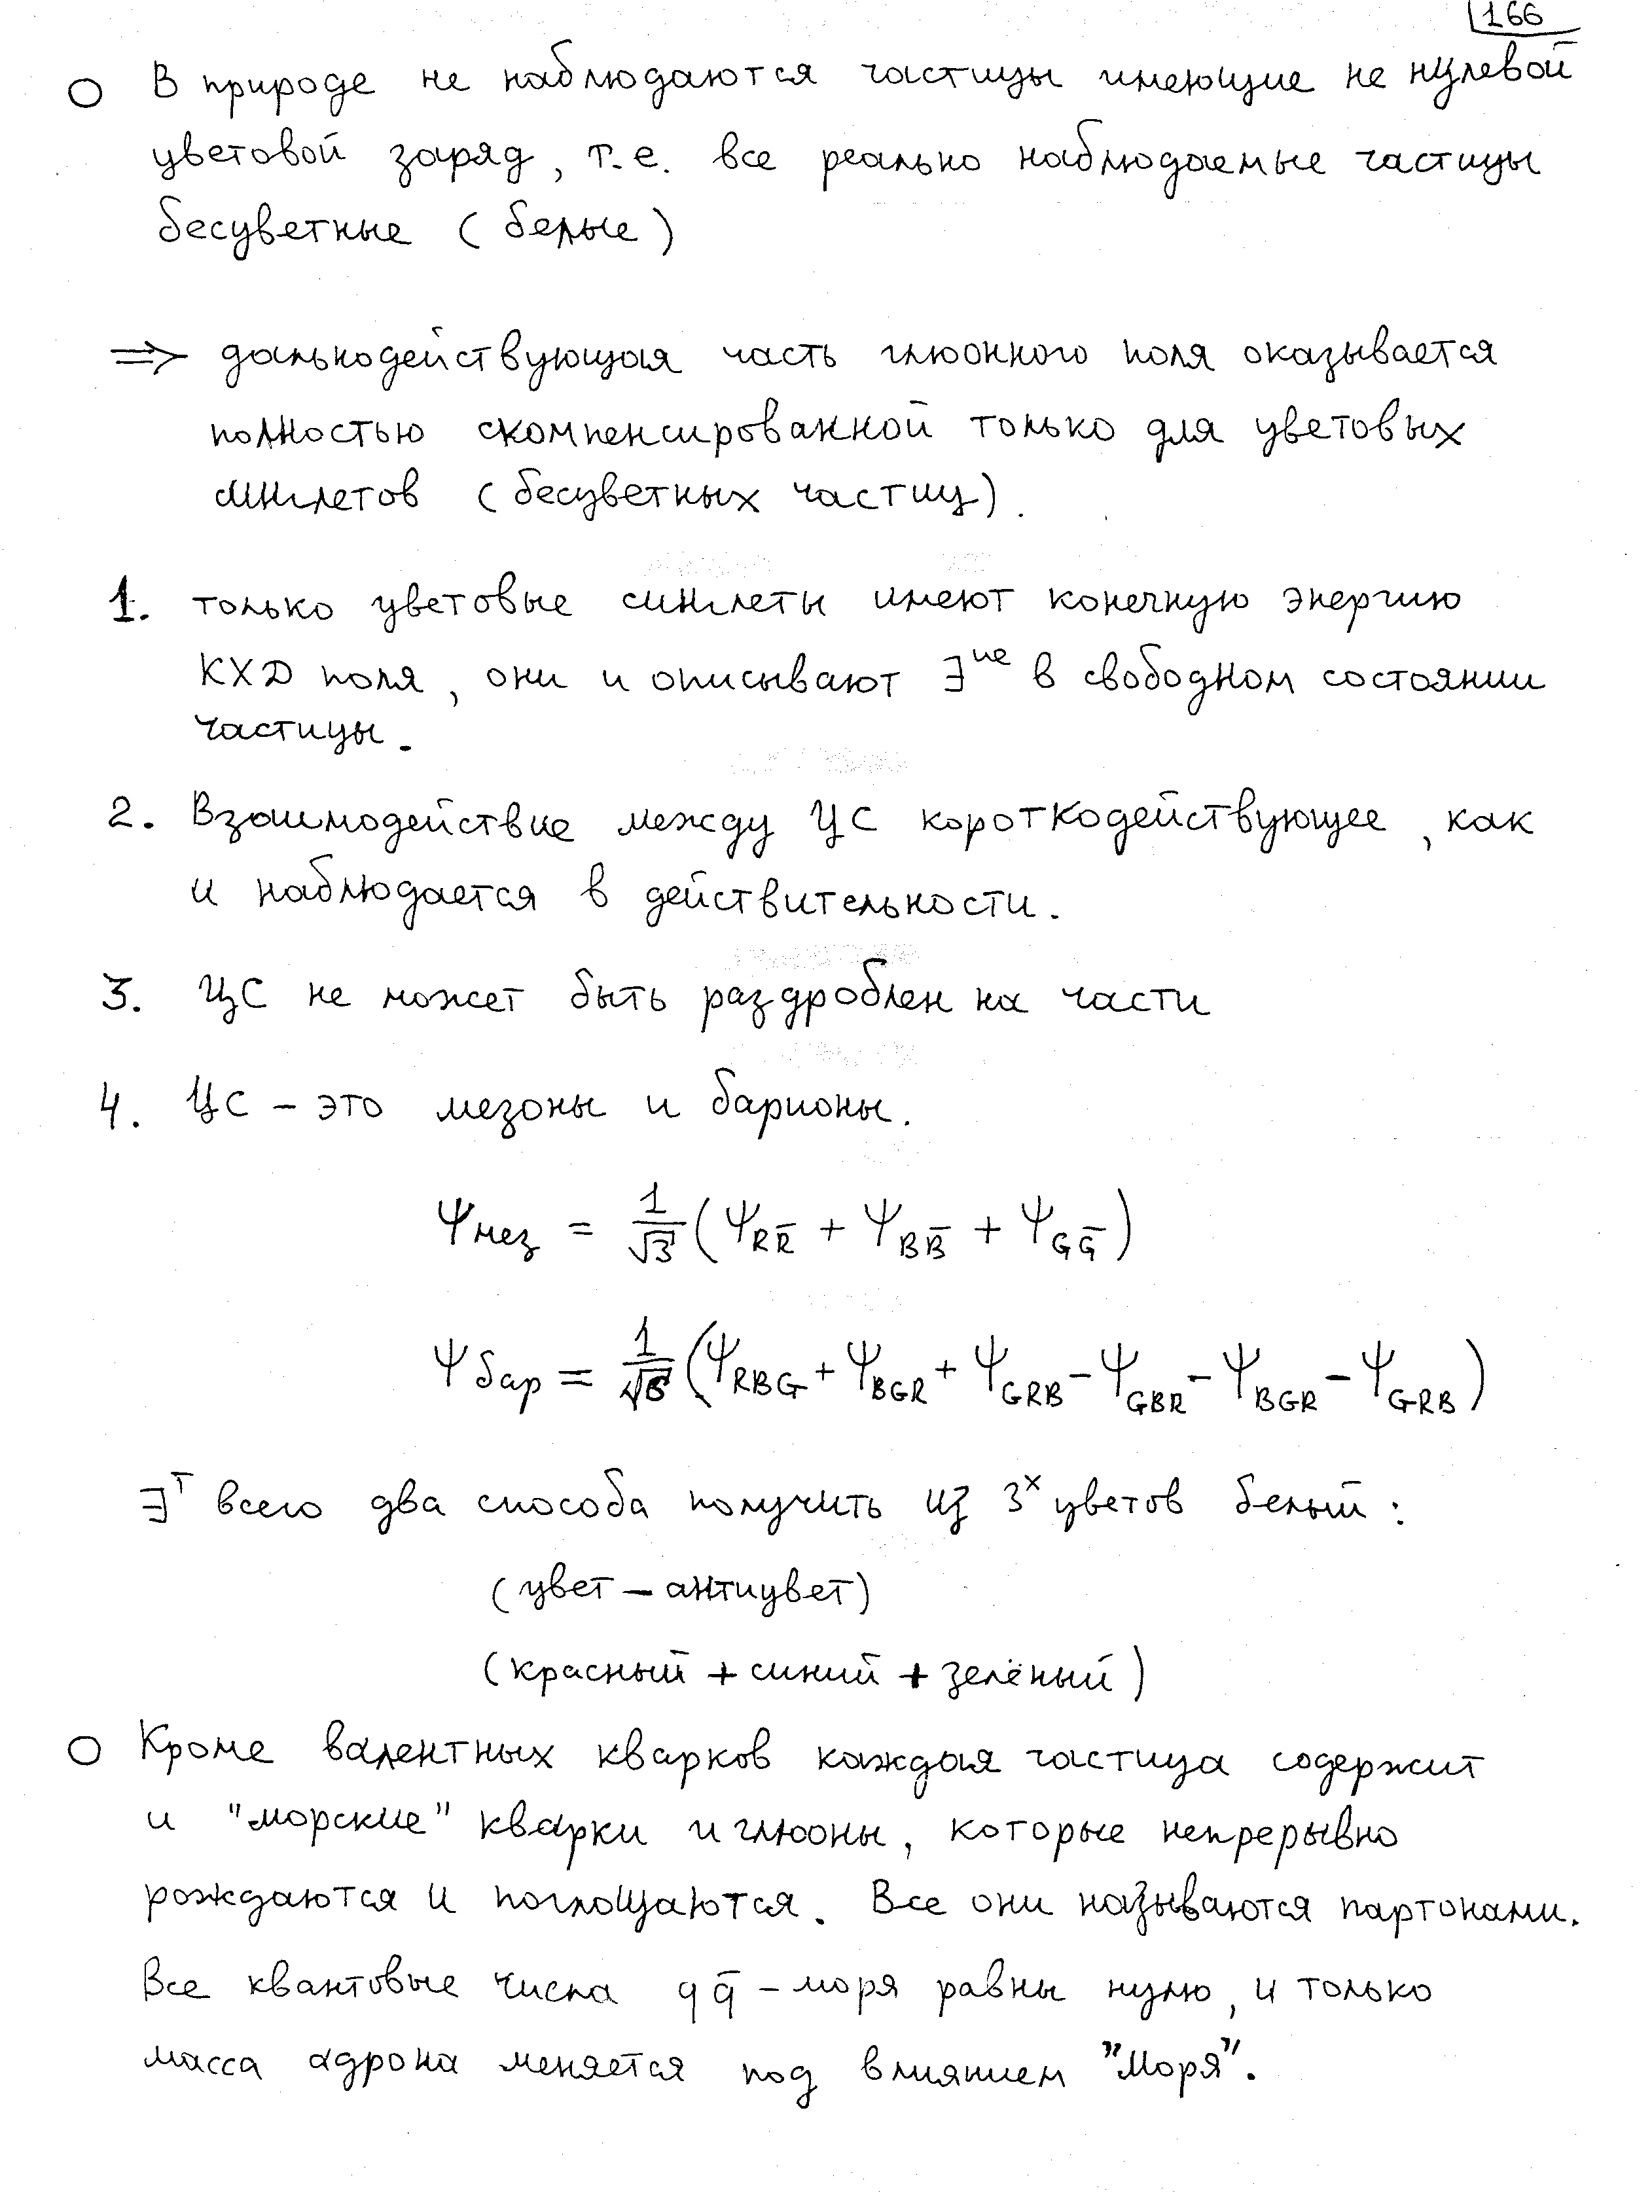 166
○ В природе не наблюдаются частицы имеющие не нулевой
цветовой заряд, т.е. все реально наблюдаемые частицы
бесцветные (белые)
⇒ дальнодействующая часть глюонного поля оказывается
полностью скомпенсированной только для цветовых
синглетов (бесцветных частиц).
1. только цветовые синглеты имеют конечную энергию
КХД поля, они и описывают ∃ие в свободном состоянии
частицы.
2. Взаимодействие между ЦС короткодействующее, как
и наблюдается в действительности.
3. ЦС не может быть раздроблен на части
4. ЦС – это мезоны и барионы.
Ψмез = 1/√3 (Ψ_RR̄ + Ψ_BB̄ + Ψ_GḠ)
Ψбар = 1/√6 (Ψ_RBG + Ψ_BGR + Ψ_GRB – Ψ_GBR – Ψ_BGR – Ψ_GRB)
∃т всего два способа получить из 3х цветов белый:
(цвет – антицвет)
(красный + синий + зелёный)
○ Кроме валентных кварков каждая частица содержит
и "морские" кварки и глюоны, которые непрерывно
рождаются и поглощаются. Все они называются партонами.
Все квантовые числа qq̄ – моря равны нулю, и только
масса адрона меняется под влиянием "Моря".